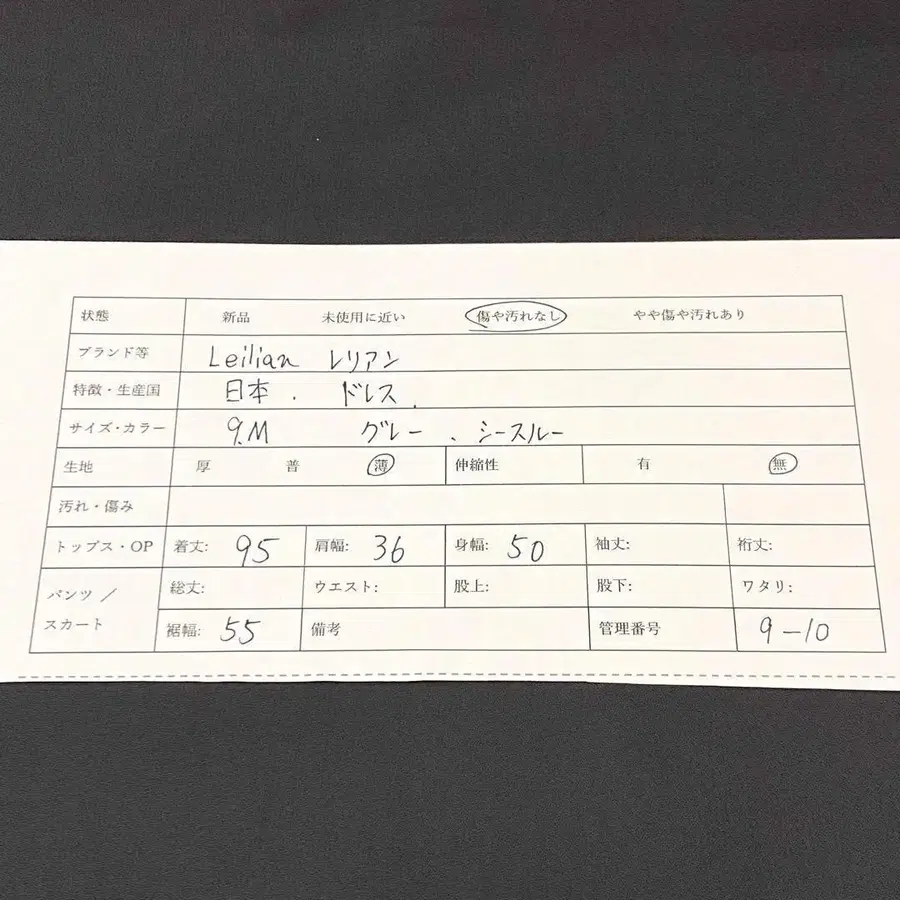 状態 新品 未使用に近い 傷や汚れなし やや傷や汚れあり
ブランド等 Leilian レリアン
特徴・生産国 日本 . ドレス .
サイズ・カラー 9.M グレー 、シースルー
生地 厚 普 薄 伸縮性 有 無
汚れ・傷み
トップス・OP 着丈: 95 肩幅: 36 身幅: 50 袖丈: 裄丈:
パンツ／スカート 総丈: ウエスト: 股上: 股下: ワタリ:
裾幅: 55 備考 管理番号 9-10